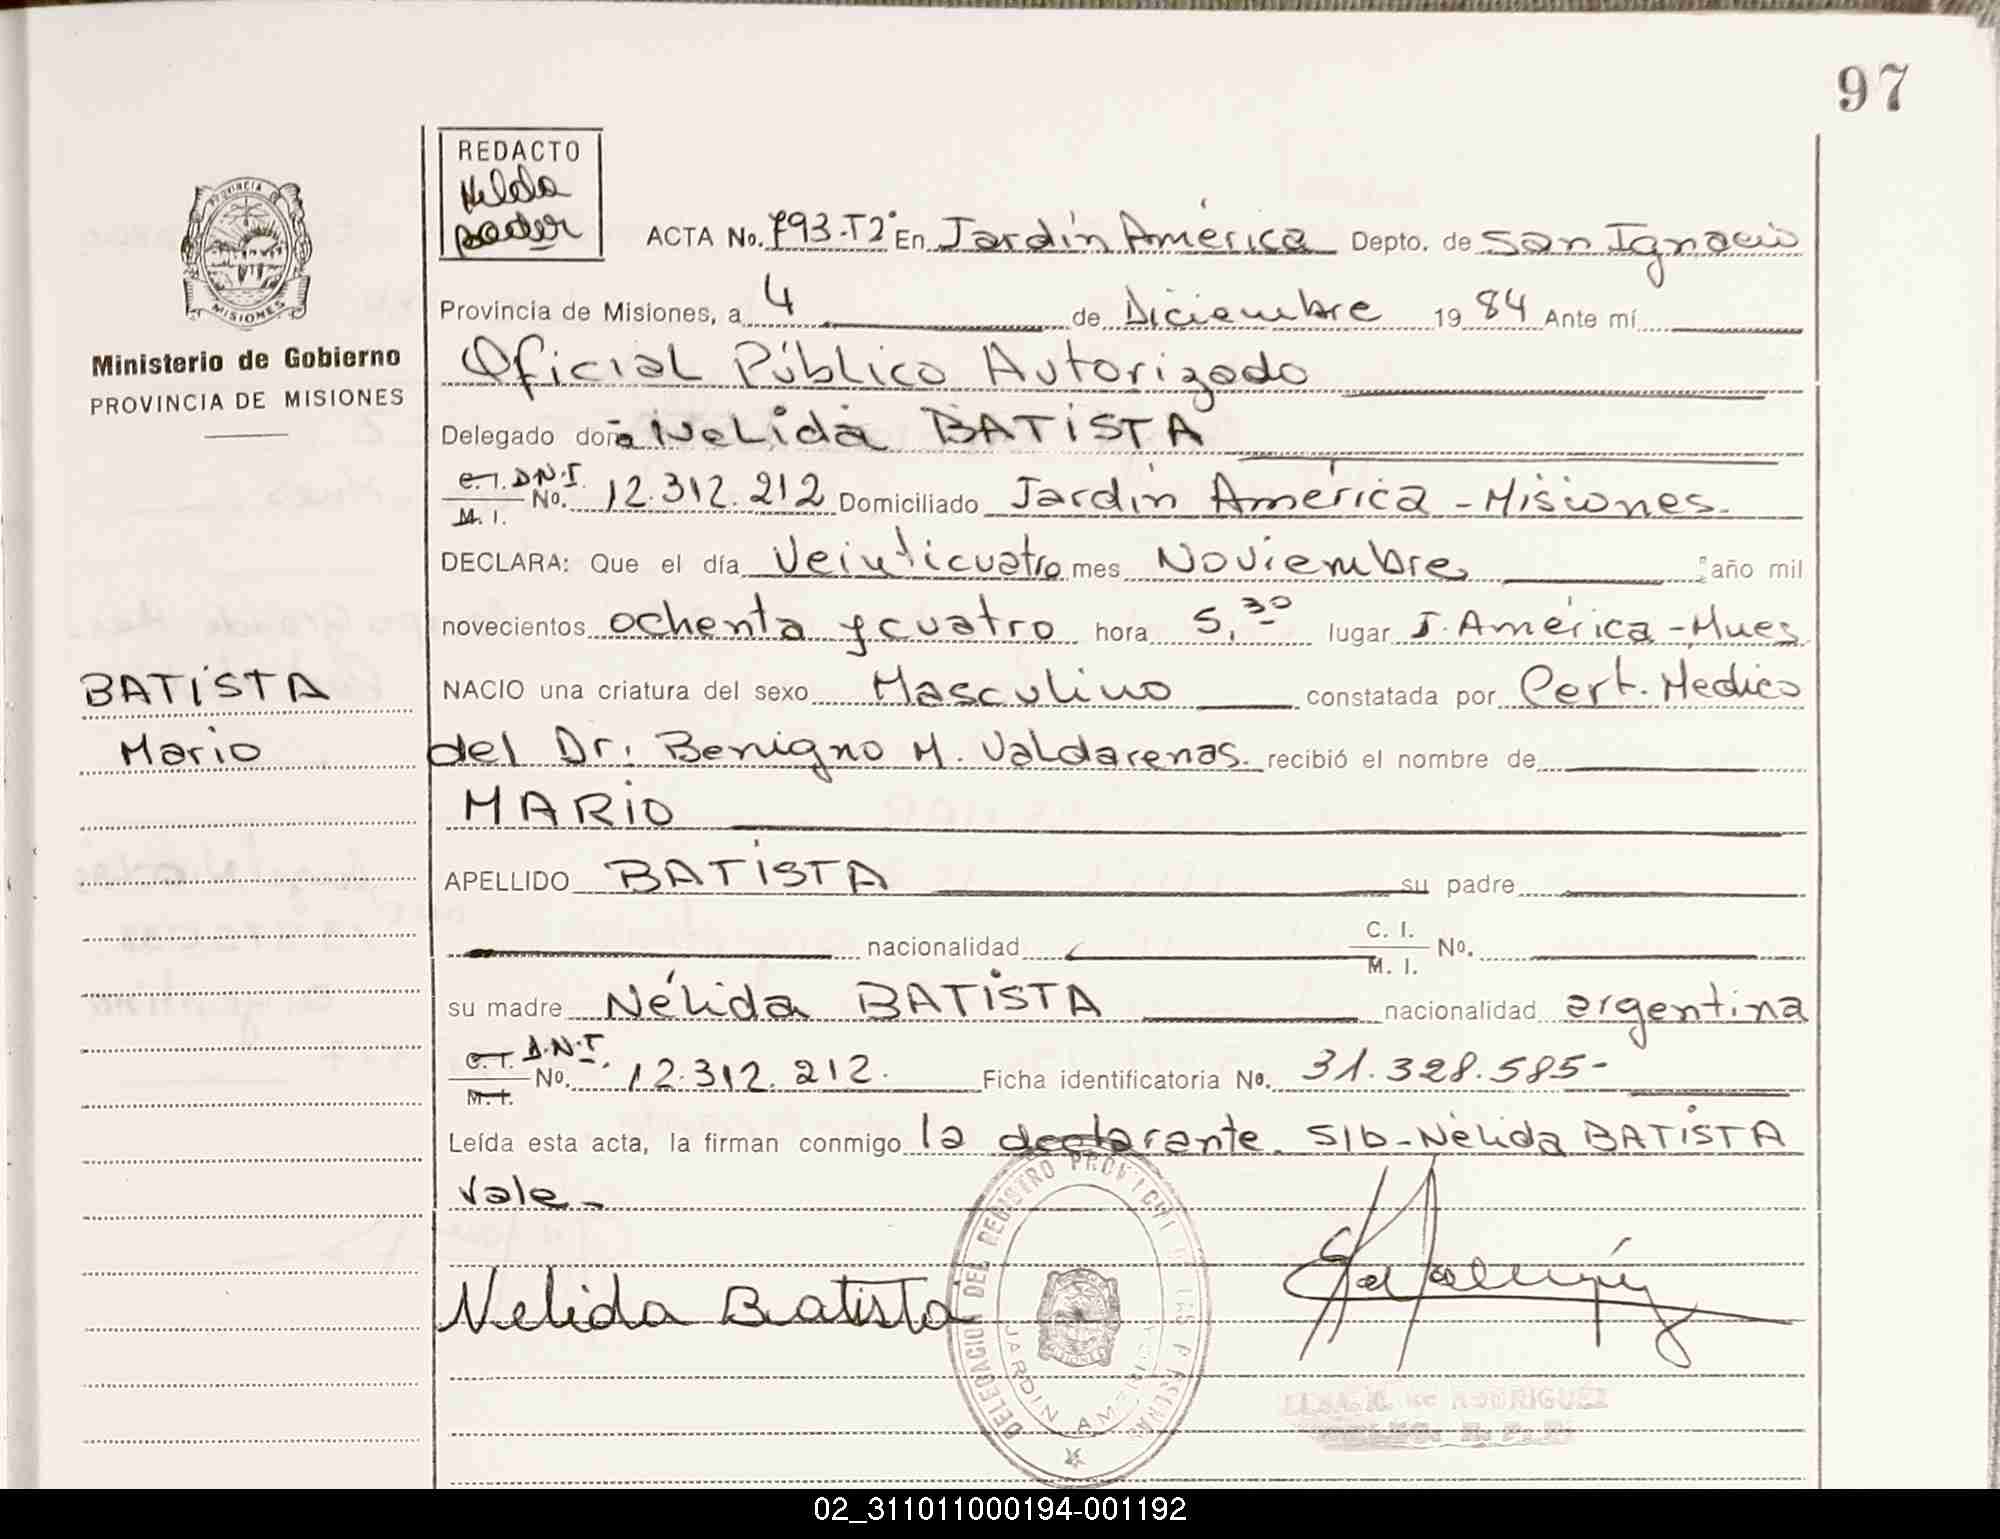 97
REDACTO
Nelda
PROVINCIA
MISIONES
ACTA No. 793-T2° En Jardín América Depto. de San Ignacio
Provincia de Misiones, a 4 de Diciembre 1984 Ante mí
Ministerio de Gobierno
PROVINCIA DE MISIONES
Oficial Público Autorizado
Delegado doña Nélida BATISTA
C.I. D.N.I.
M. I. No. 12.312.212 Domiciliado Jardín América - Misiones.
DECLARA: Que el día Veinticuatro mes Noviembre año mil
novecientos ochenta y cuatro hora 5,30 lugar J. América - Mnes
BATISTA
NACIO una criatura del sexo Masculino constatada por Cert. Medico
Mario
del Dr. Benigno M. Valdarenas. recibió el nombre de
MARIO
APELLIDO BATISTA su padre
nacionalidad C. I. No.
M. I.
su madre Nélida BATISTA nacionalidad argentina
C.I. D.N.I.
M.I. No. 12.312.212. Ficha identificatoria No. 31.328.585-
Leída esta acta, la firman conmigo la declarante. S/b - Nélida BATISTA
vale -
Nelida Batista
DELEGACION DEL REGISTRO PROVINCIAL DE LAS PERSONAS
JARDIN AMERICA
DE RODRIGUEZ
02_311011000194-001192